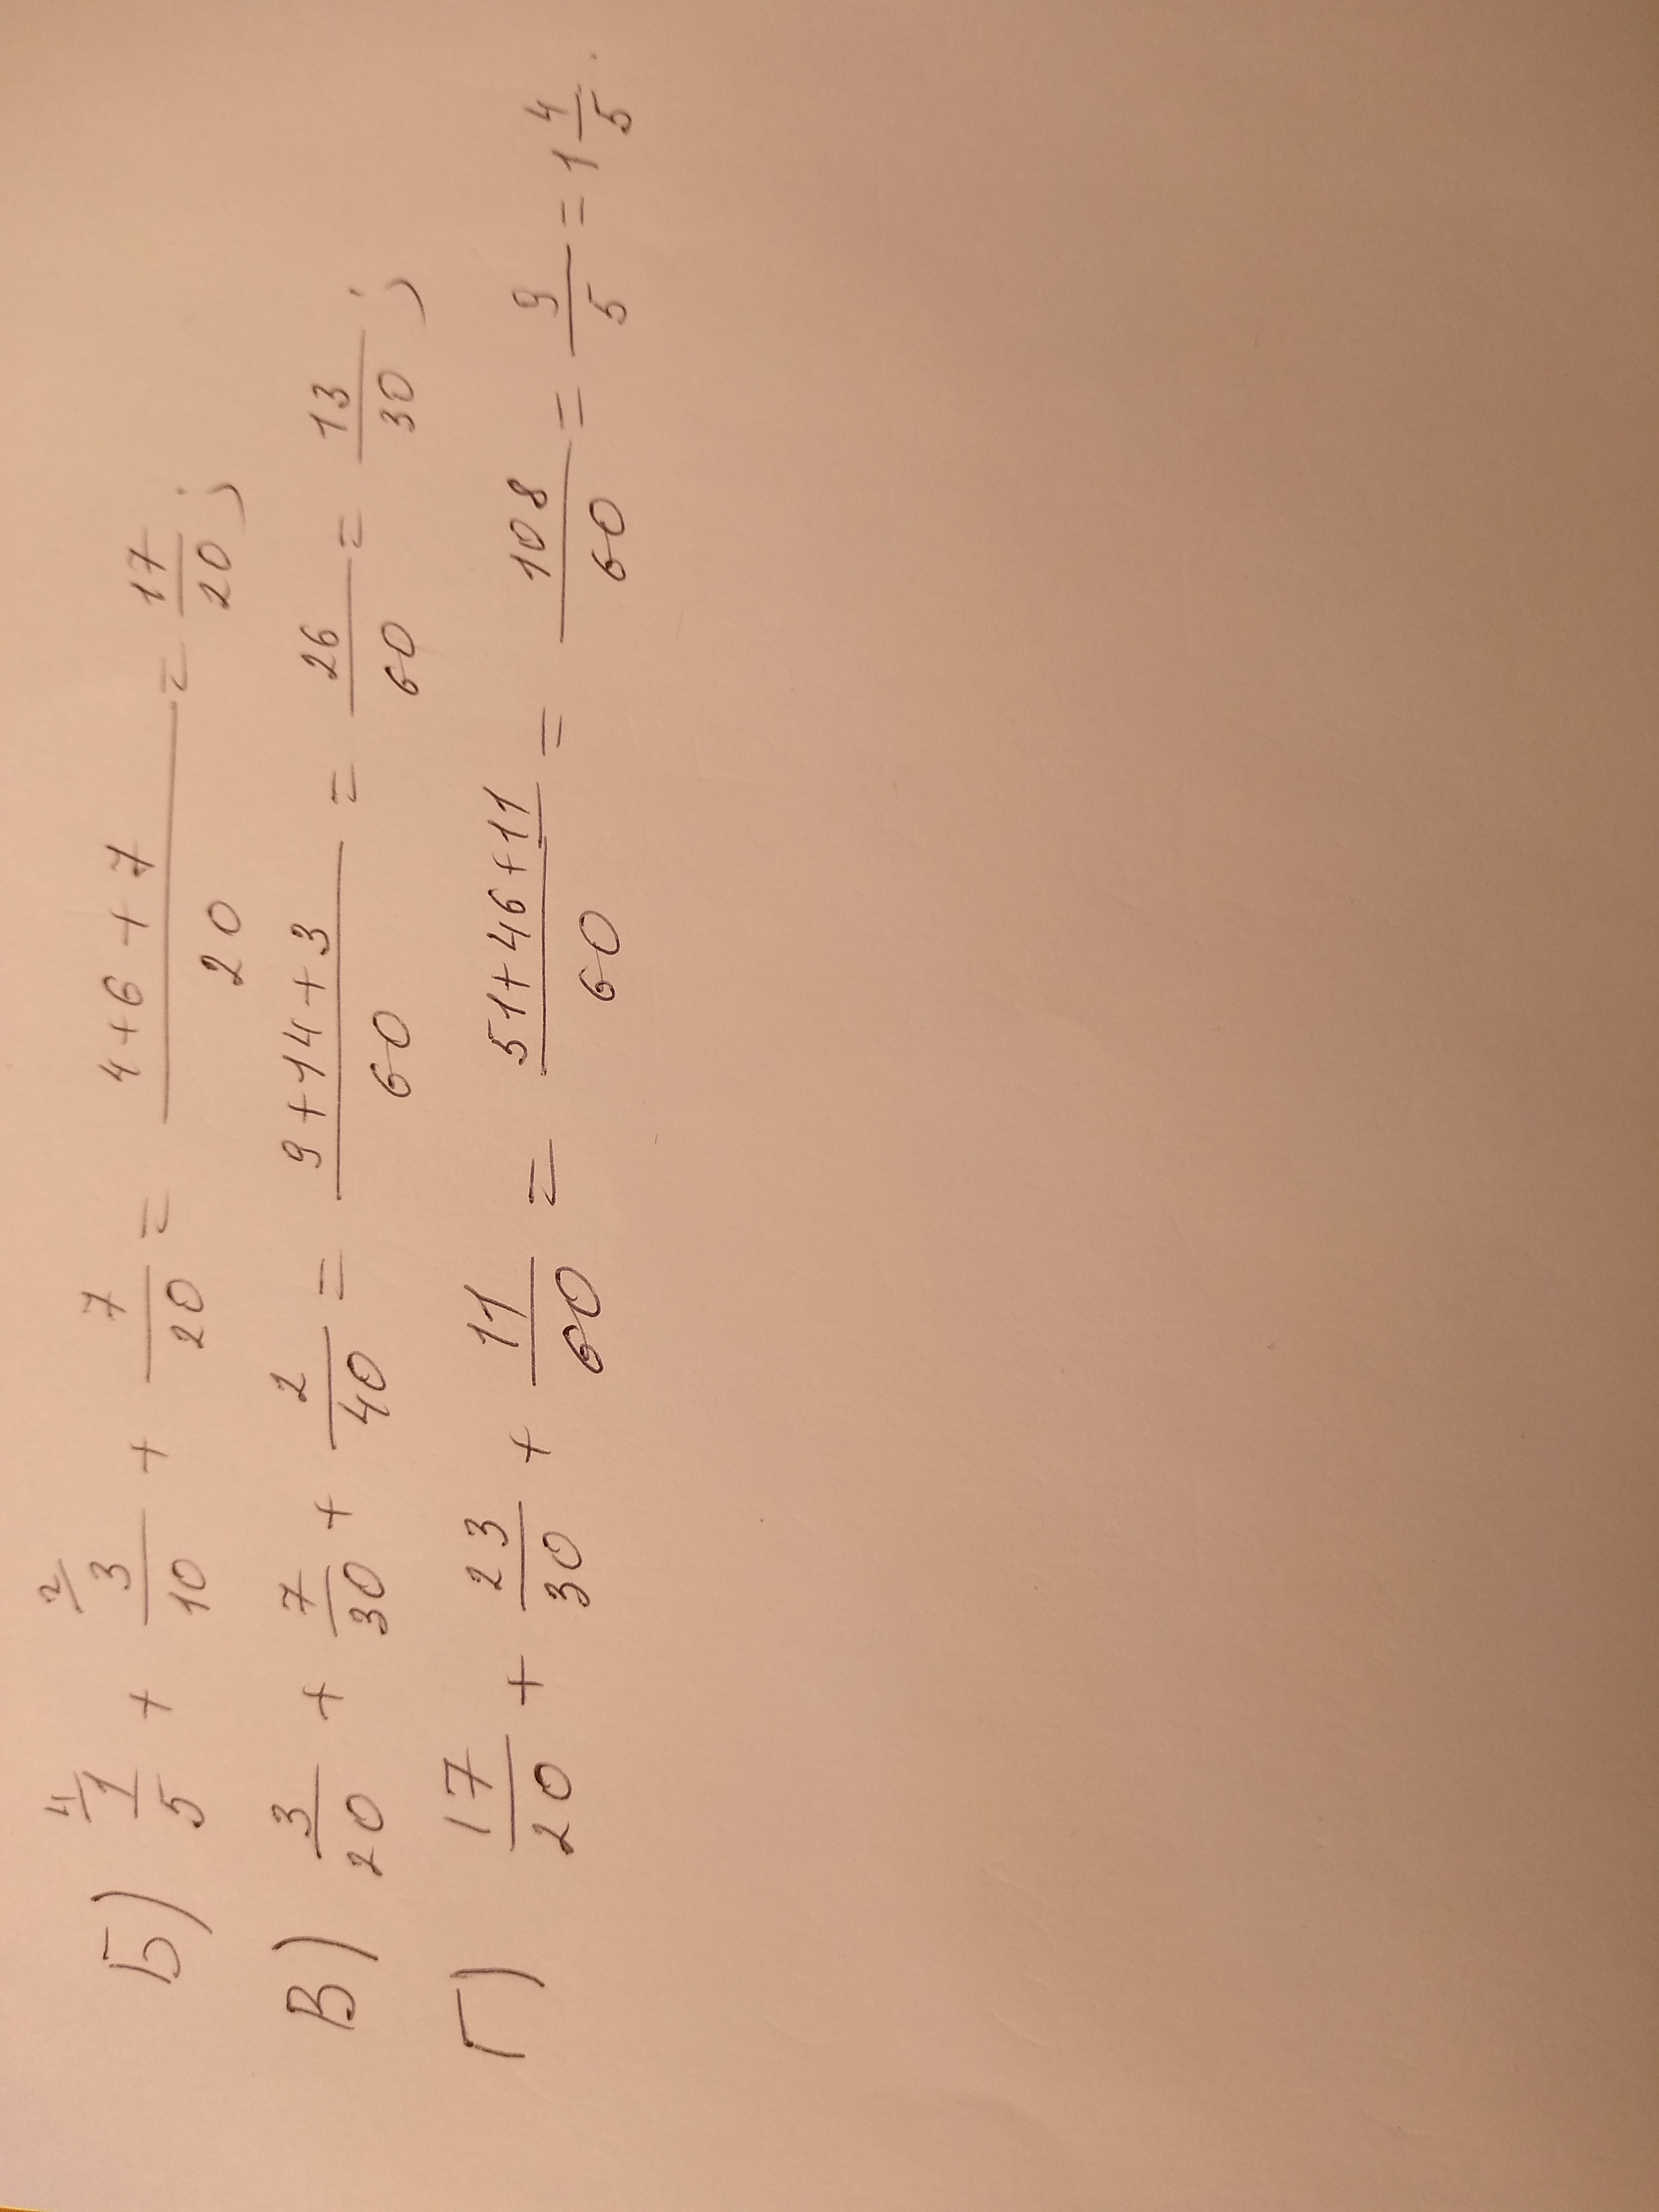 Б) ⁴⁄ 1/5 + ²⁄ 3/10 + 7/20 = (4+6+7)/20 = 17/20;
В) 3/20 + 7/30 + 2/40 = (9+14+3)/60 = 26/60 = 13/30;
Г) 17/20 + 23/30 + 11/60 = (51+46+11)/60 = 108/60 = 9/5 = 1 4/5.